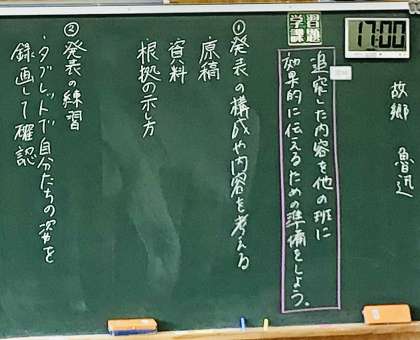 17:00
故郷 魯迅
学習課題
追究した内容を他の班に
効果的に伝えるための準備をしよう。
①発表の構成や内容を考える
原稿
資料
根拠の示し方
②発表の練習
・タブレットで自分たちの姿を
録画して確認